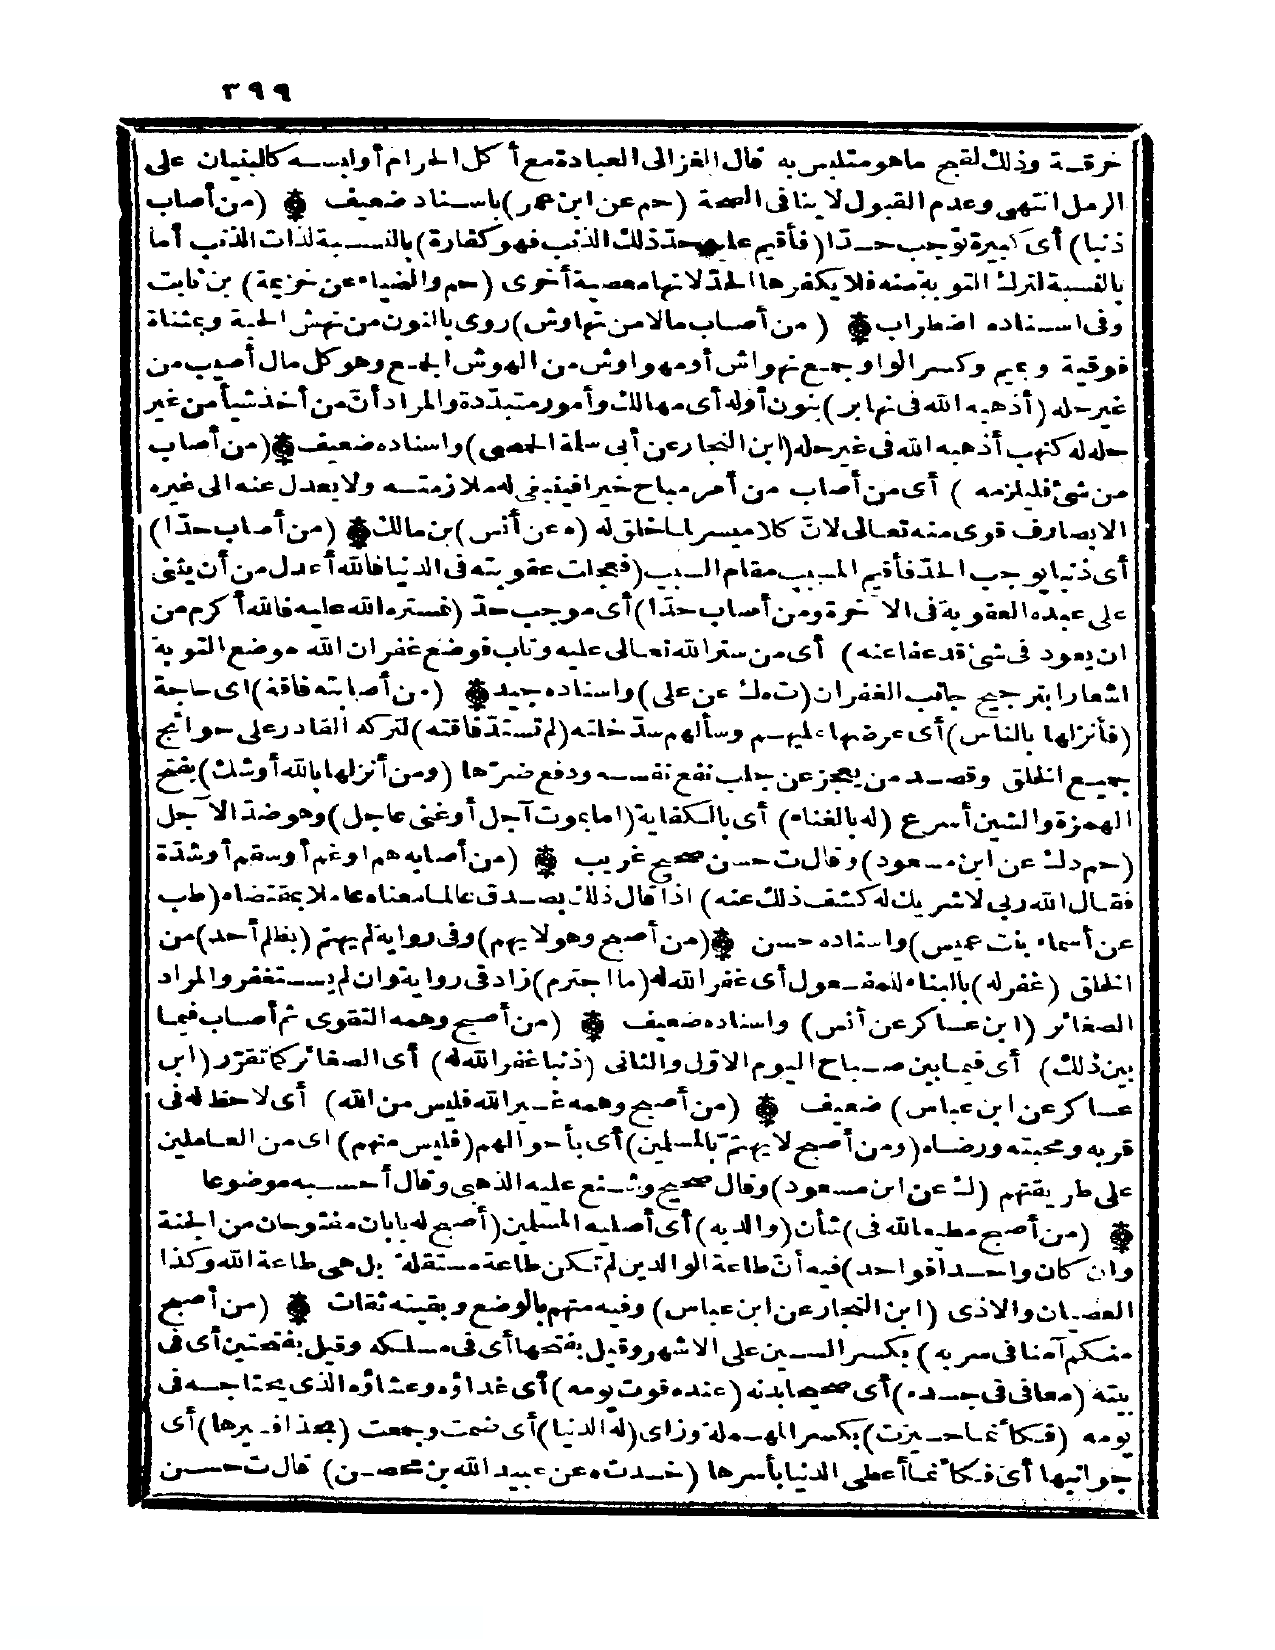 ٣٩٩
خرقة وذلك لقبح ماهو متلبس به قال الغزالى العبادة مع أكل الحرام أو لبسه كالبنيان على
الرمل انتهى وعدم القبول لا ينافى الصحة (حم عن ابن عمر) باسناد ضعيف ۞ (من أصاب
ذنبا) أى كبيرة توجب حدّا (فأقيم عليه حد ذلك الذنب فهو كفارة) بالنسبة لذات الذنب أما
بالنسبة لترك التوبة منه فلا يكفرها الحدّ لانها معصية أخرى (حم والضياء عن خزيمة) بن ثابت
وفى اسناده اضطراب ۞ (من أصاب مالا من نهاوش) روى بالنون من نهش الحية وبمثناة
فوقية وبميم وكسر الواو جمع نهواش أو مهواوش من الهوش الجمع وهو كل مال أصيب من
غير حله (أذهبه الله فى نهابر) بنون أوله أى مهالك وأمور متبدّدة والمراد أنّ من أخذ شيأ من غير
حله له كنهب أذهبه الله فى غير حله (ابن النجار عن أبى سلة الحمصى) واسناده ضعيف ۞ (من أصاب
من شئ فليلزمه) أى من أصاب من أمر مباح خيرا فينبغى له ملازمته ولا يعدل عنه الى غيره
الا بصارف قوى منه تعالى لانّ كلا ميسر لما خلق له (ه عن أنس) بن مالك ۞ (من أصاب حدّا)
أى ذنبا يوجب الحدّ فأقيم المسبب مقام السبب (فعجلت عقوبته فى الدنيا فالله أعدل من أن يثنى
على عبده العقوبة فى الآخرة ومن أصاب حدّا) أى موجب حدّ (فستره الله عليه فالله أكرم من
ان يعود فى شئ قد عفا عنه) أى من ستر الله تعالى عليه وتاب فوضع غفران الله موضع التوبة
اشعارا بترجيح جانب الغفران (ت ه ك عن على) واسناده جيد ۞ (من أصابته فاقة) اى حاجة
(فأنزلها بالناس) أى عرضها عليهم وسألهم سدّ خلته (لم تسدّ فاقته) لتركه القادر على حوائج
جميع الخلق وقصد من يعجز عن جلب نفع نفسه ودفع ضرّها (ومن أنزلها بالله أوشك) بفتح
الهمزة والشين أسرع (له بالغناء) أى بالكفاية (اما بموت آجل أو غنى عاجل) وهو ضدّ الآجل
(حم د ك عن ابن مسعود) وقال ت حسن صحيح غريب ۞ (من أصابه هم او غم أو سقم أو شدّة
فقال الله ربى لا شريك له كشف ذلك عنه) اذا قال ذلك بصدق عالما معناه عاملا بمقتضاه (طب
عن أسماء بنت عميس) واسناده حسن ۞ (من أصبح وهو لا يهم) وفى رواية لم يهتم (بظلم أحد) من
الخلق (غفر له) بالبناء للمفعول أى غفر الله له (ما اجترم) زاد فى رواية وان لم يستغفر والمراد
الصغائر (ابن عساكر عن أنس) واسناده ضعيف ۞ (من أصبح وهمه التقوى ثم أصاب فيما
بين ذلك) أى فيما بين صباح اليوم الاوّل والثانى (ذنبا غفر الله له) أى الصغائر كما تقرّر (ابن
عساكر عن ابن عباس) ضعيف ۞ (من أصبح وهمه غير الله فليس من الله) أى لا حظ له فى
قربه ومحبته ورضاه (ومن أصبح لا يهتمّ بالمسلمين) أى بأحوالهم (فليس منهم) اى من العاملين
على طريقتهم (ك عن ابن مسعود) وقال صحيح وشنع عليه الذهبى وقال أحسبه موضوعا
۞ (من أصبح مطيعا لله فى) شأن (والديه) أى أصليه المسلمين (أصبح له بابان مفتوحان من الجنة
وان كان واحدا فواحد) فيه أنّ طاعة الوالدين لم تكن طاعة مستقلة بل هى طاعة الله وكذا
العصيان والاذى (ابن النجار عن ابن عباس) وفيه متهم بالوضع وبقيته ثقات ۞ (من أصبح
منكم آمنا فى سربه) بكسر السين على الاشهر وقيل بفتحها أى فى مسلكه وقيل بفتحتين أى فى
بيته (معافى فى جسده) أى صحيحا بدنه (عنده قوت يومه) أى غداؤه وعشاؤه الذى يحتاجه فى
يومه (فكأنما حيزت) بكسر المهملة وزاى (له الدنيا) أى ضمت وجمعت (بحذافيرها) أى
جوانبها أى فكأنما أعطى الدنيا بأسرها (خد ت ه عن عبيد الله بن محصن) قال ت حسن